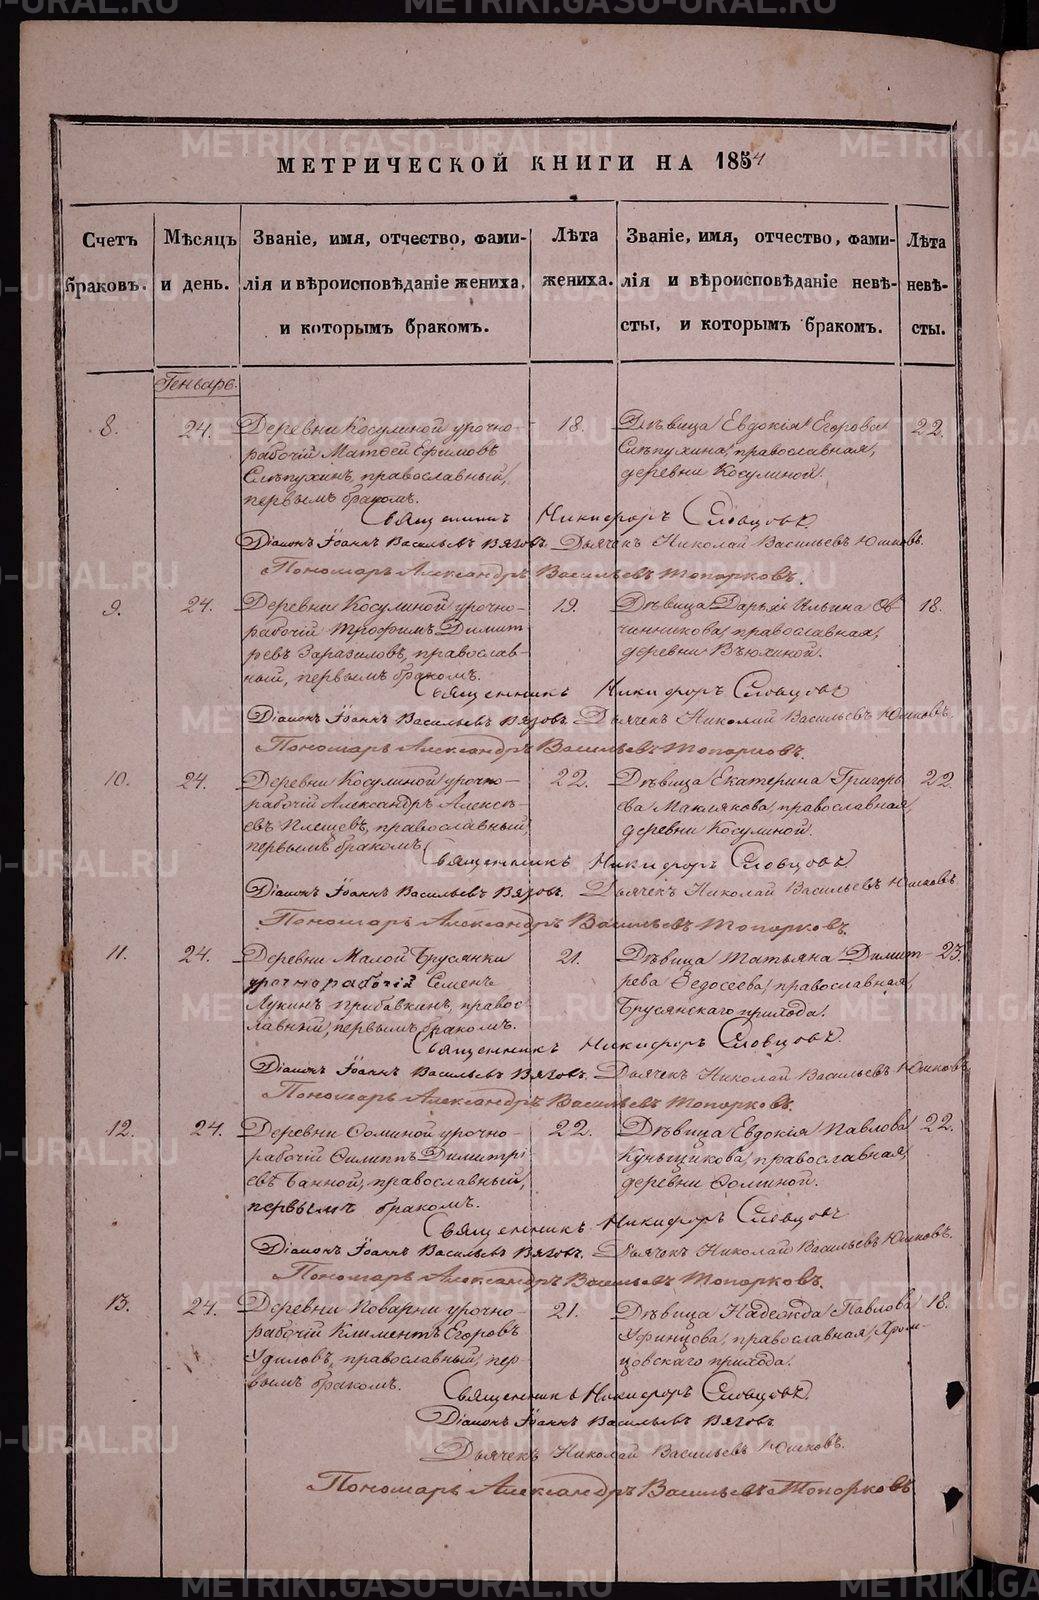 МЕТРИЧЕСКОЙ КНИГИ НА 1854
Счетъ браковъ.
Мѣсяцъ и день.
Званіе, имя, отчество, фами-
лія и вѣроисповѣданіе жениха,
и которымъ бракомъ.
Лѣта
жениха.
Званіе, имя, отчество, фами-
лія и вѣроисповѣданіе невѣ-
сты, и которымъ бракомъ.
Лѣта
невѣ-
сты.
Генварь.
8.
24.
Деревни Косулиной урочно-
рабочій Матѳей Ефимовъ
Слѣпухинъ, православный,
первымъ бракомъ.
18.
Дѣвица Евдокія Егорова
Слѣпухина, православная,
деревни Косулиной.
22.
Священникъ Никифоръ Словцовъ.
Діаконъ Іоаннъ Васильевъ Вяговъ. Дьячекъ Николай Васильевъ Юшковъ.
Пономарь Александръ Васильевъ Топорковъ.
9.
24.
Деревни Косулиной урочно-
рабочій Трофимъ Димит
ревъ Заразиловъ, православ-
ный, первымъ бракомъ.
19.
Дѣвица Дарья Ильина Ов-
чинникова, православная,
деревни Вьюхиной.
18.
Священникъ Никифоръ Словцовъ
Діаконъ Іоаннъ Васильевъ Вяговъ. Дьячекъ Николай Васильевъ Юшковъ.
Пономарь Александръ Васильевъ Топорковъ.
10.
24.
Деревни Косулиной урочно-
рабочій Александръ Алексѣ-
евъ Плещевъ, православный,
первымъ бракомъ.
22.
Дѣвица Екатерина Григорь
ева Маклякова, православная,
деревни Косулиной.
22
Священникъ Никифоръ Словцовъ
Діаконъ Іоаннъ Васильевъ Вяговъ. Дьячекъ Николай Васильевъ Юшковъ.
Пономарь Александръ Васильевъ Топорковъ.
11.
24.
Деревни Малой Брусянки
урочнорабочій Семенъ
Лукинъ Прибавкинъ, правос-
лавный, первымъ бракомъ.
21.
Дѣвица Татьяна Димит-
рева Ѳедосеева, православная,
Брусянскаго прихода.
23.
Священникъ Никифоръ Словцовъ.
Діаконъ Іоаннъ Васильевъ Вяговъ. Дьячекъ Николай Васильевъ Юшковъ
Пономарь Александръ Васильевъ Топорковъ.
12.
24.
Деревни Фоминой урочно-
рабочій Филиппъ Димитрі
евъ Банной, православный,
первымъ бракомъ.
22.
Дѣвица Евдокія Павлова
православная,
деревни Фоминой.
22.
Священникъ Никифоръ Словцовъ
Діаконъ Іоаннъ Васильевъ Вяговъ. Дьячекъ Николай Васильевъ Юшковъ.
Пономарь Александръ Васильевъ Топорковъ.
13.
24.
Деревни Поварни урочно-
рабочій Климентъ Егоровъ
Удиловъ, православный, пер-
вымъ бракомъ.
21.
Дѣвица Надежда Павлова
Уфинцова, православная, Хром-
цовскаго прихода.
18.
Священникъ Никифоръ Словцовъ.
Діаконъ Іоаннъ Васильевъ Вяговъ
Дьячекъ Николай Васильевъ Юшковъ.
Пономарь Александръ Васильевъ Топорковъ
METRIKI.GASO-URAL.RU